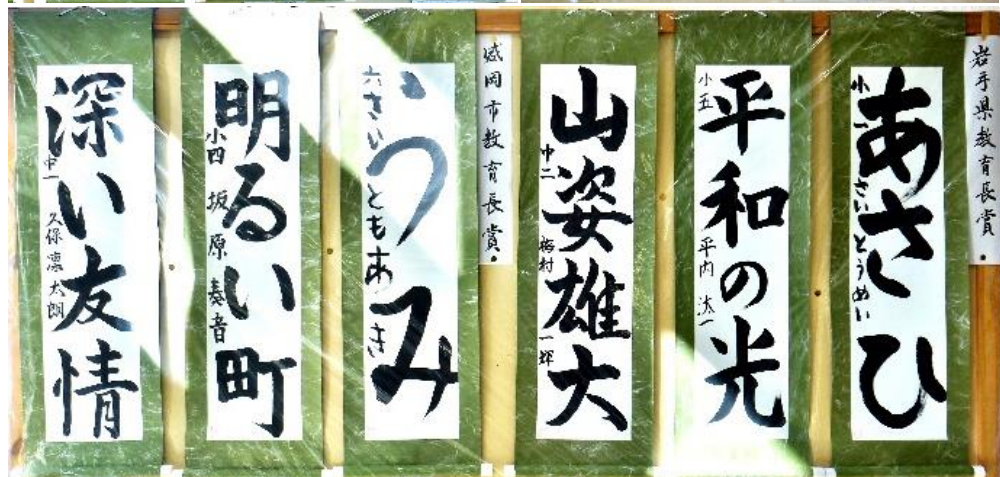 岩手県教育長賞
あさひ
小一 さいとうめい
平和の光
小五 平内 汰一
山姿雄大
中二 梅村 一輝
盛岡市教育長賞
うみ
六さい ともあき
明るい町
小四 坂原 奏音
深い友情
中一 久保凛太朗